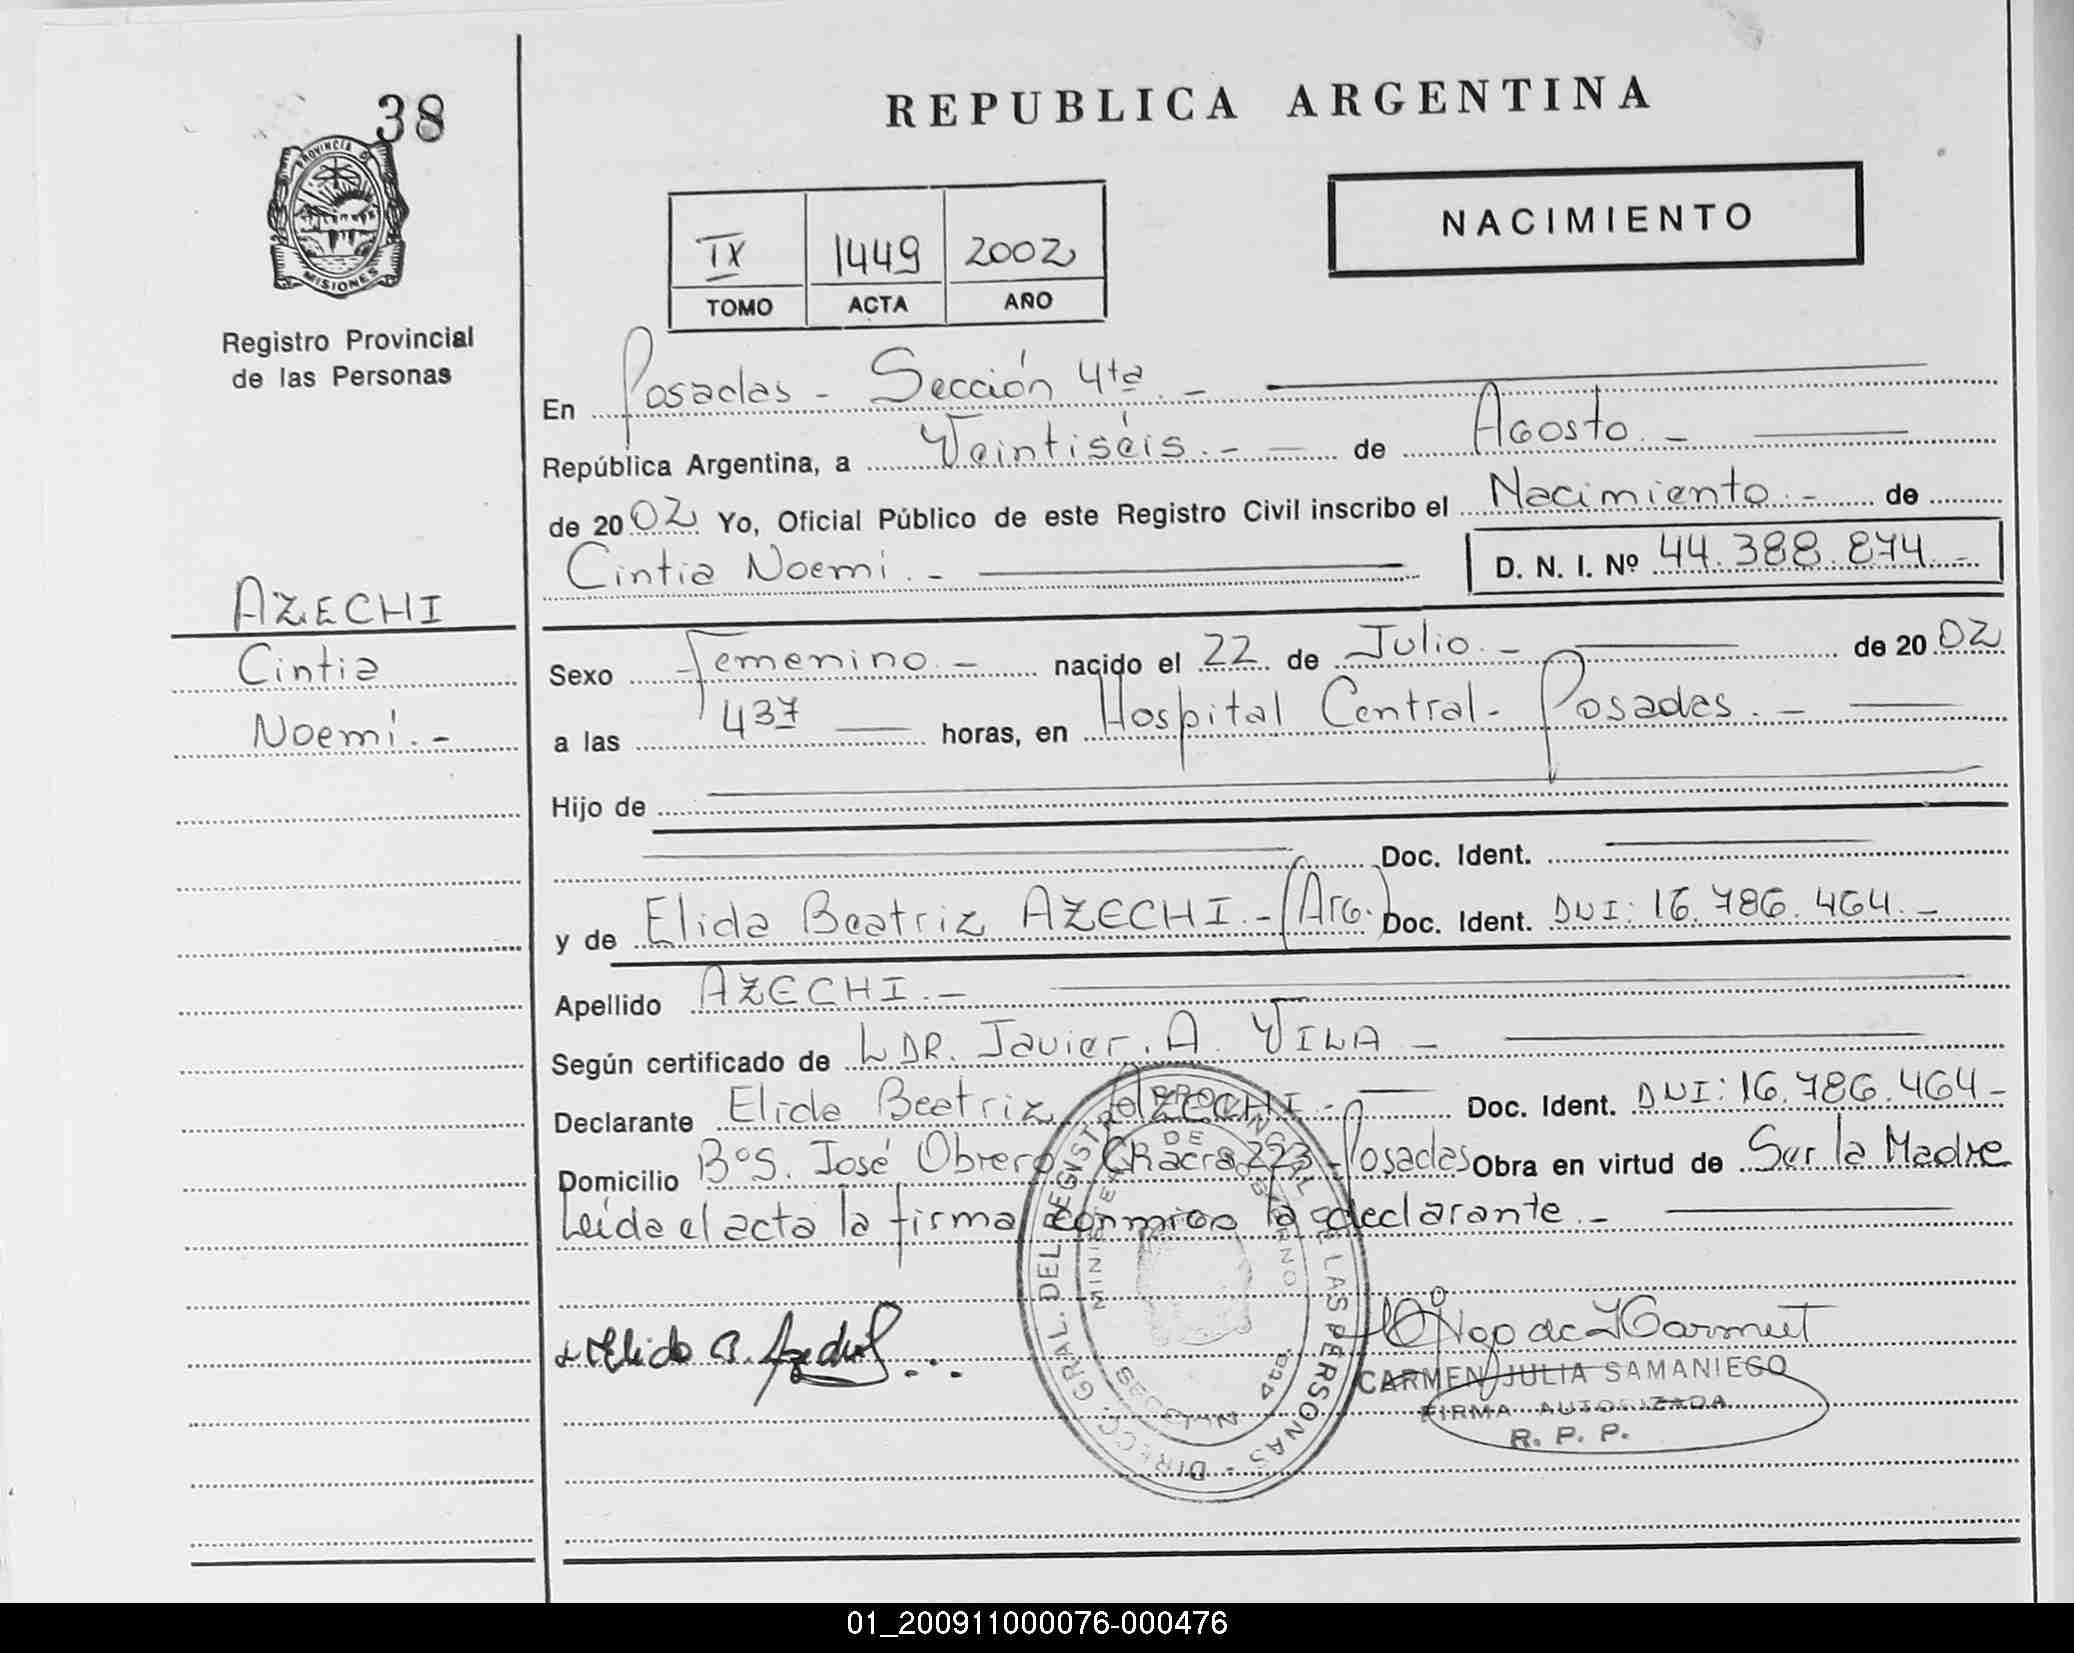 38
PROVINCIA DE
MISIONES
Registro Provincial
de las Personas
REPUBLICA ARGENTINA
NACIMIENTO
IX 1449 2002
TOMO ACTA AÑO
En Posadas - Sección 4ta. -
República Argentina, a Veintiséis. - de Agosto. -
de 2002 Yo, Oficial Público de este Registro Civil inscribo el Nacimiento. - de
Cintia Noemi. - D. N. I. Nº 44.388.874. -
AZECHI
Cintia
Noemi. -
Sexo Femenino. - nacido el 22 de Julio. - de 2002
a las 437 horas, en Hospital Central - Posadas. -
Hijo de
Doc. Ident.
y de Elida Beatriz AZECHI. - (Arg.) Doc. Ident. DNI: 16.786.464. -
Apellido AZECHI. -
Según certificado de DR. Javier. A. VILA -
Declarante Elida Beatriz AZECHI. - Doc. Ident. DNI: 16.786.464 -
Domicilio BºS. José Obrero Chacra 223 - Posadas Obra en virtud de Ser la Madre
Leída el acta la firma conmigo la declarante. -
DIRECC. GRAL. DEL REGISTRO PROVINCIAL DE LAS PERSONAS
CARMEN JULIA SAMANIEGO
FIRMA AUTORIZADA
R. P. P.
01_200911000076-000476